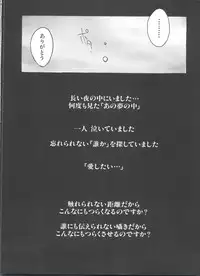 ………
………
だけど
ありがとう
長い夜の中にいました…
何度も見た「あの夢の中」
一人 泣いていました
忘れられない「誰か」を探していました
『愛したい…』
触れられない距離だから
こんなにもつらくなるのですか？
誰にも伝えられない囁きだから
こんなにもつらくさせるのですか？